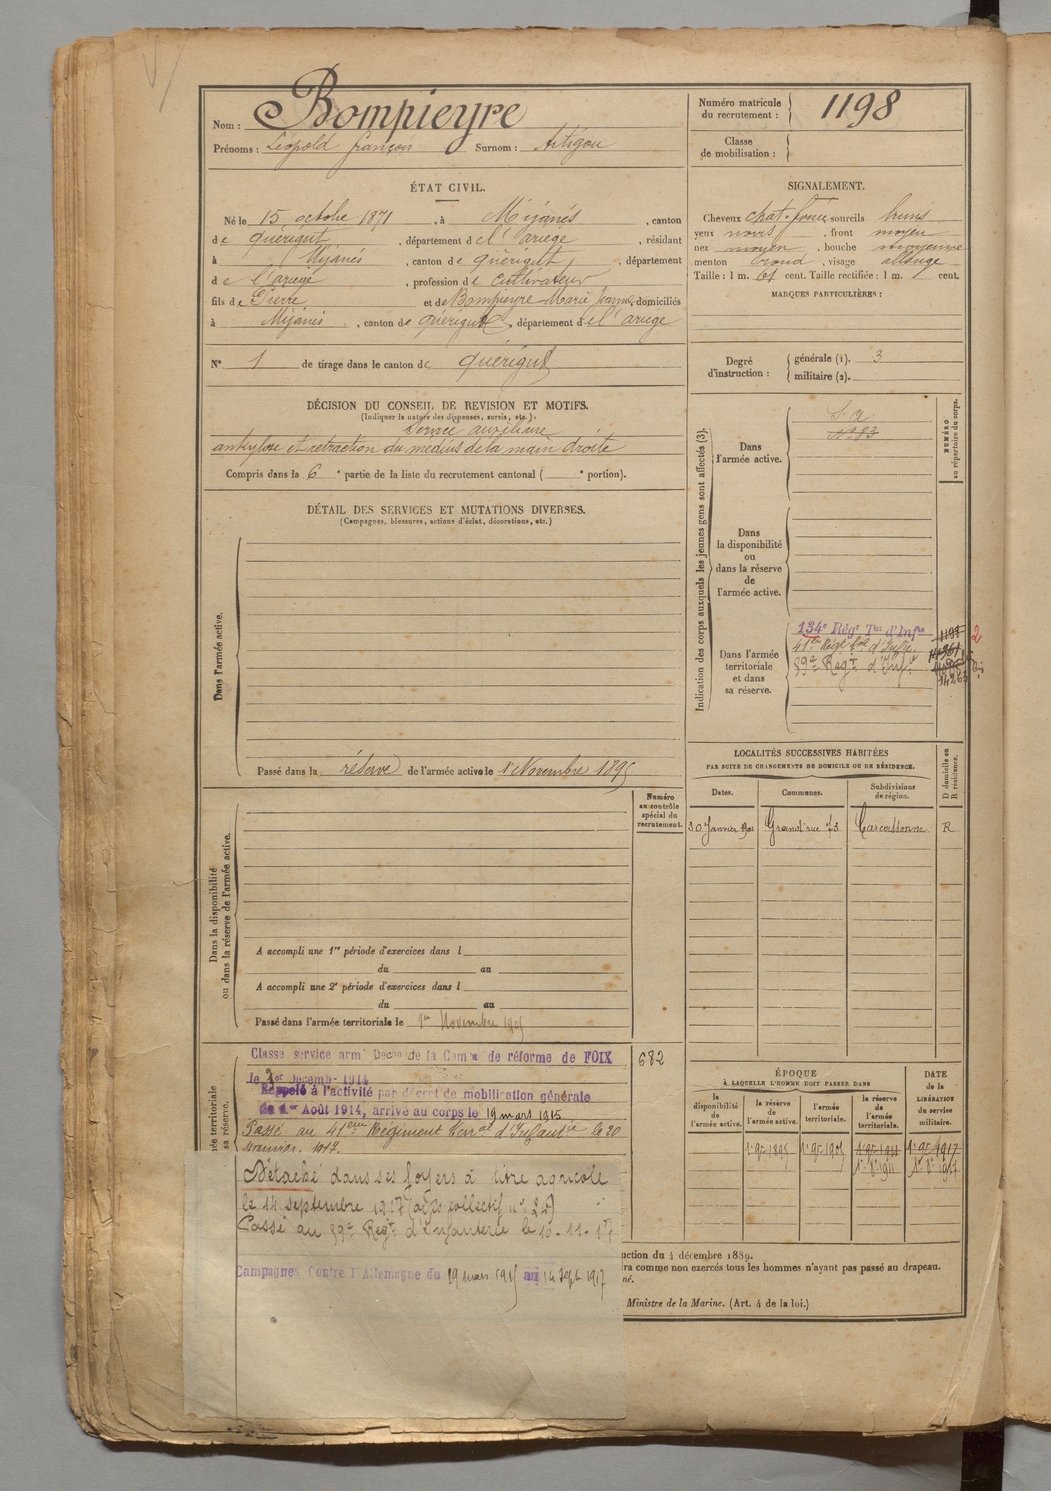 Nom : Bompieyre
Prénoms : Léopold françois Surnom : Artigou
Numéro matricule du recrutement : 1198
Classe de mobilisation :
ÉTAT CIVIL.
Né le 15 octobre 1871, à Mijanès, canton
de Quérigut, département de l'ariege, résidant
à Mijanès, canton de Quérigut, département
de l'ariege, profession de Cultivateur
fils de Pierre et de Bompieyre Marie Jeanne, domiciliés
à Mijanès, canton de Quérigut, département de l'ariege
N° 1 de tirage dans le canton de Quérigut
SIGNALEMENT.
Cheveux chat. foncé sourcils bruns
yeux noirs, front moyen
nez moyen, bouche moyenne
menton rond, visage allongé
Taille : 1 m. 61 cent. Taille rectifiée : 1 m. cent.
MARQUES PARTICULIÈRES :
Degré d'instruction : générale (1). 3
militaire (2).
DÉCISION DU CONSEIL DE REVISION ET MOTIFS.
(Indiquer la nature des dispenses, sursis, etc.).
Service auxiliaire
ankylose et retraction du médius de la main droite
Compris dans la 6e partie de la liste du recrutement cantonal ( e portion).
DÉTAIL DES SERVICES ET MUTATIONS DIVERSES.
(Campagnes, blessures, actions d'éclat, décorations, etc.)
Dans l'armée active.
Passé dans la réserve de l'armée active le 1er Novembre 1895
Numéro au contrôle spécial du recrutement.
Dans la disponibilité ou dans la réserve de l'armée active.
A accompli une 1re période d'exercices dans l
du au
A accompli une 2e période d'exercices dans l
du au
Passé dans l'armée territoriale le 1er Novembre 1905
Classé service armé de la de réforme de FOIX
682
le 1er Décemb. 1914
Rappelé à l'activité par décret de mobilisation générale
du 1er Août 1914, arrivé au corps le 19 mars 1915
Passé au 41eme Régiment terral d'Infantie le 20
Janvier 1917.
Détaché dans ses foyers à titre agricole
le 14 septembre 1917 (avis collectif n° 24)
Passé au 89e Regt d'Infanterie le 10-11-17
Campagnes Contre l'Allemagne du 19 mars 1915 au 14 Sept 1917
Indication des corps auxquels les jeunes gens sont affectés (3).
NUMÉRO au répertoire du corps.
Dans l'armée active.
S. a
N° 83
Dans la disponibilité ou dans la réserve de l'armée active.
Dans l'armée territoriale et dans sa réserve.
134e Régt Tal d'Infie 1198 2
41eme Régt tal d'Infie
89e Regt d'Infie
LOCALITÉS SUCCESSIVES HABITÉES
PAR SUITE DE CHANGEMENTS DE DOMICILE OU DE RÉSIDENCE.
Dates. Communes. Subdivisions de région. D domicile ou R résidence.
30 Janvier Grand'rue 73 Carcassonne R
ÉPOQUE
À LAQUELLE L'HOMME DOIT PASSER DANS
DATE de la LIBÉRATION du service militaire.
la disponibilité de l'armée active. la réserve de l'armée active. l'armée territoriale. la réserve de l'armée territoriale.
1er 9bre 1895 1er 9bre 1905 1er 9bre 1911 1er 9bre 1917
uction du 4 décembre 1889.
ra comme non exercés tous les hommes n'ayant pas passé au drapeau.
né.
Ministre de la Marine. (Art. 4 de la loi.)